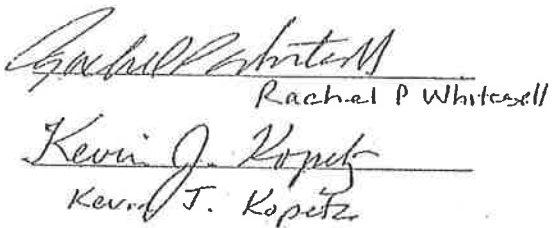 Rachel P Whitesell
Rachel P Whitesell
Kevin J. Kopetz
Kevin J. Kopetz